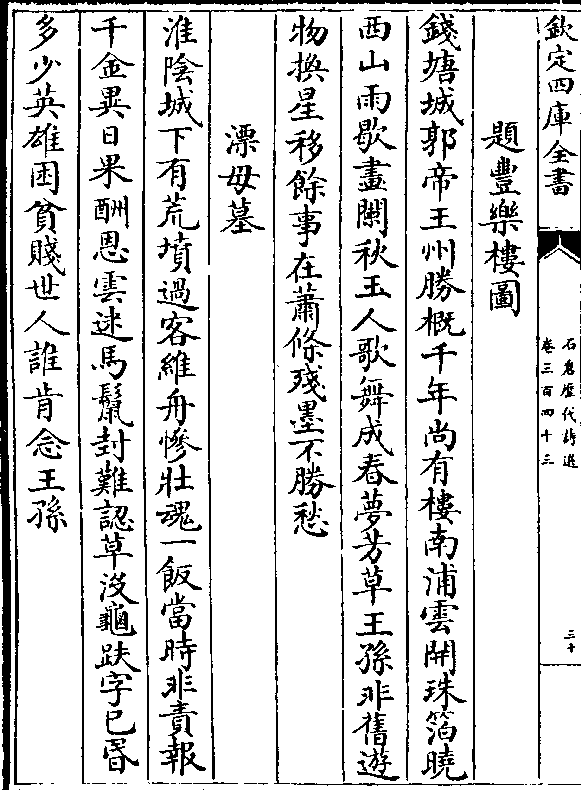 欽定四庫全書
石倉歷代詩選
卷三百四十三
三十
題豐樂樓圖
錢塘城郭帝王州勝概千年尚有樓南浦雲開珠箔曉
西山雨歇畫闌秋玉人歌舞成春夢芳草王孫非舊遊
物換星移餘事在蕭條殘墨不勝愁
漂母墓
淮陰城下有荒墳過客維舟慘壯魂一飯當時非責報
千金異日果酬恩雲迷馬鬛封難認草沒龜趺字已昏
多少英雄困貧賤世人誰肯念王孫